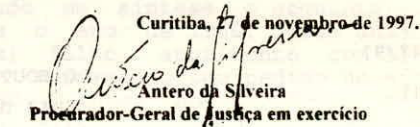 Curitiba, 27 de novembro de 1997.
Antero da Silveira
Procurador-Geral de Justiça em exercício